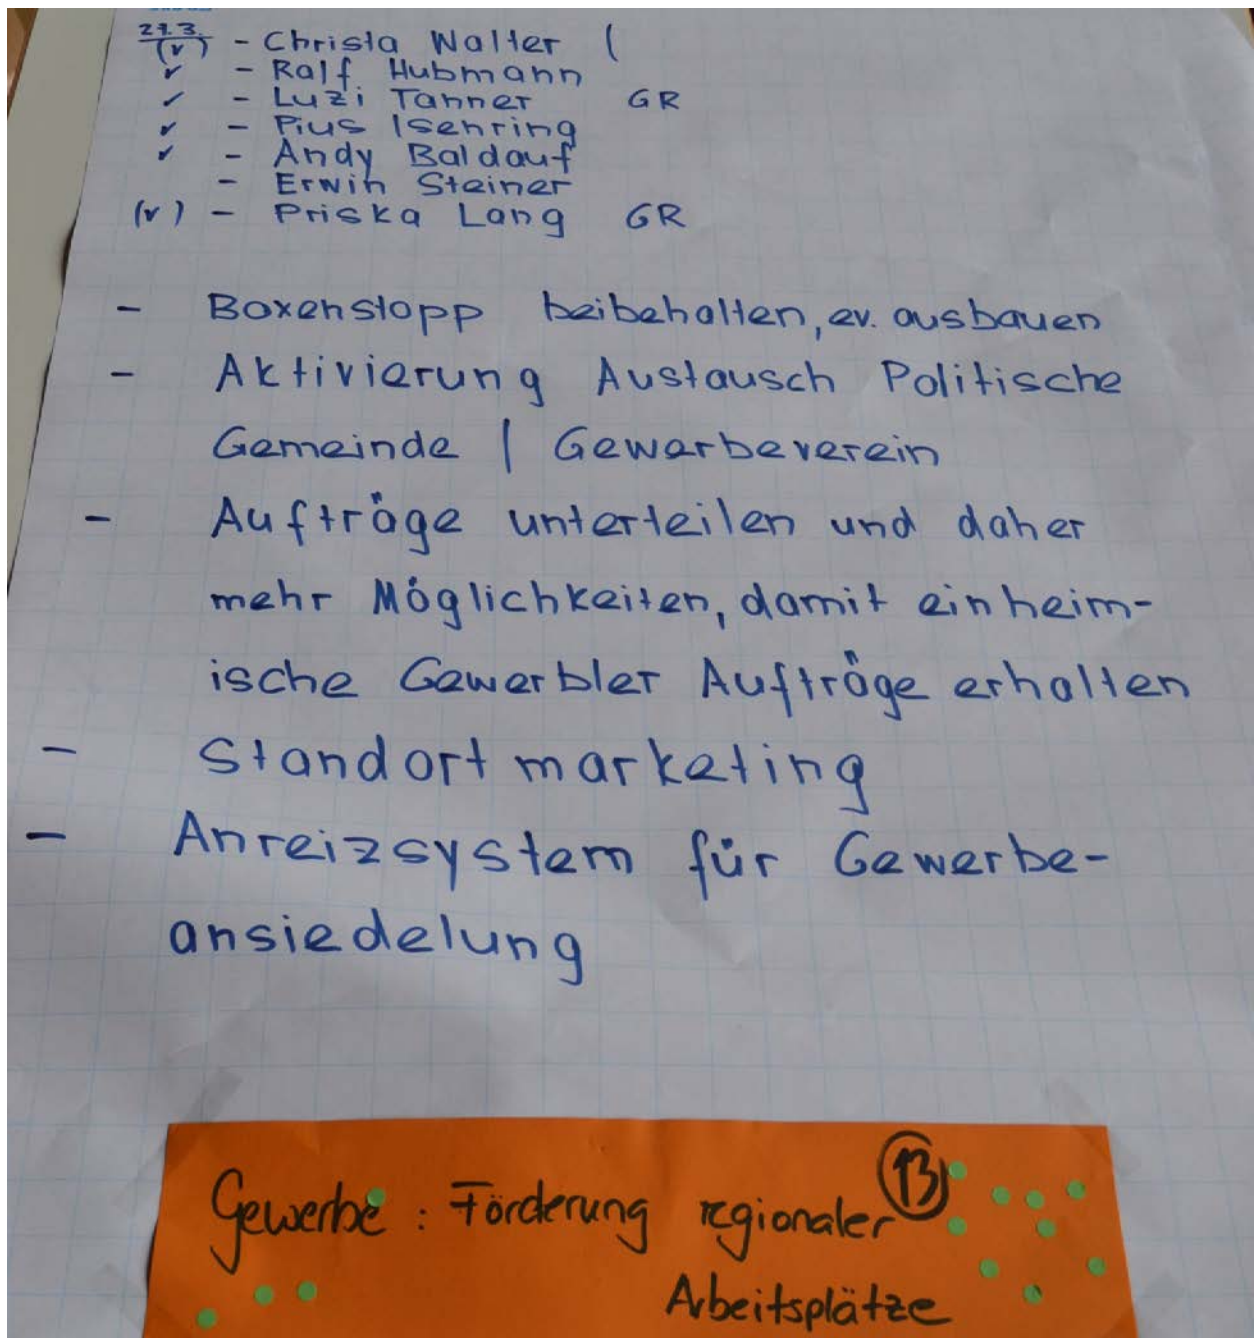 27.3.
(✓) - Christa Walter (
✓ - Ralf Hubmann
✓ - Luzi Tanner GR
✓ - Pius Isenring
✓ - Andy Baldauf
- Erwin Steiner
(✓) - Priska Lang GR
- Boxenstopp beibehalten, ev. ausbauen
- Aktivierung Austausch Politische
Gemeinde | Gewerbeverein
- Aufträge unterteilen und daher
mehr Möglichkeiten, damit einheim-
ische Gewerbler Aufträge erhalten
- Standortmarketing
- Anreizsystem für Gewerbe-
ansiedelung
Gewerbe : Förderung regionaler 13
Arbeitsplätze